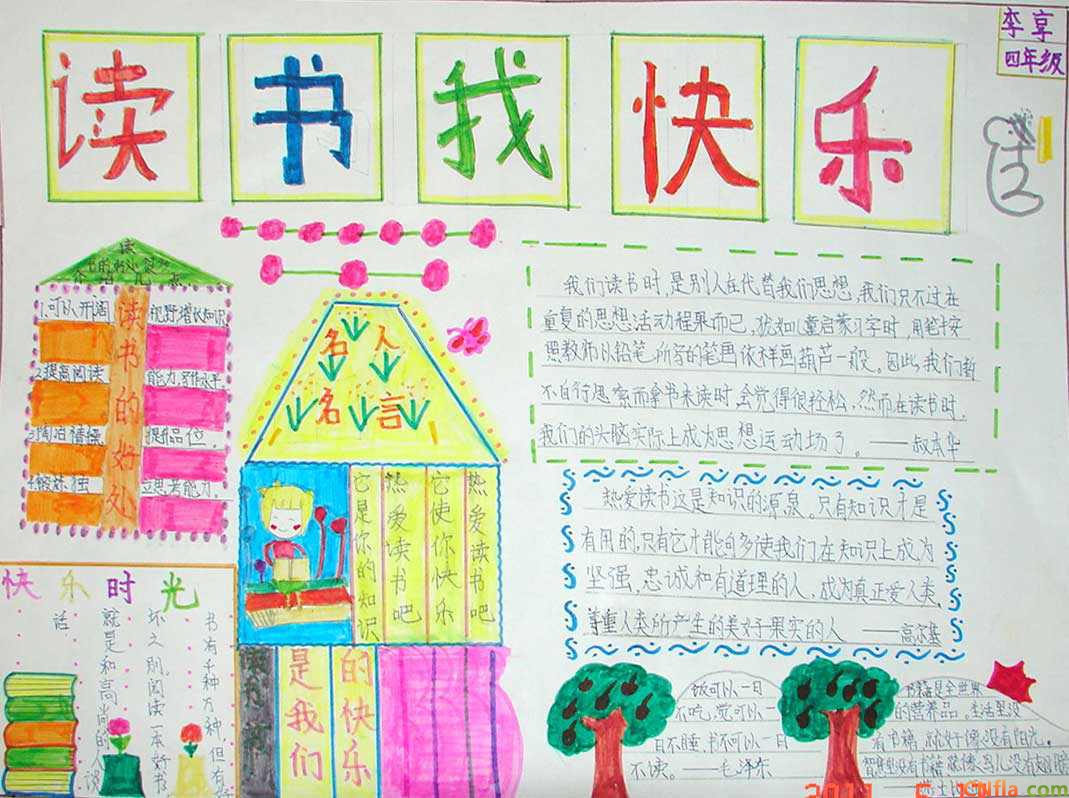 读书我快乐
李享
四年级
读
书的好处
读书的好处
1.可以开阔
视野增长知识
2.提高阅读
能力,写作水平
3.陶冶情操
提品位。
4.锻炼独
立思考能力。
名人
名言
热爱读书吧
它使你快乐
热爱读书吧
它是你的知识
的快乐
是我们
快乐时光
书有千种万种但有
坏之别,阅读一本好书
就是和高尚的人说
话
我们读书时,是别人在代替我们思想,我们只不过在
重复的思想活动程果而已,犹如儿童启蒙习字时,用笔按
照教师以铅笔所写的笔画依样画葫芦一般。因此,我们暂
不自行思索而拿书来读时,会觉得很轻松,然而在读书时,
我们的头脑实际上成为思想运动场了。——叔本华
热爱读书这是知识的源泉。只有知识才是
有用的,只有它才能够多使我们在知识上成为
坚强,忠诚和有道理的人,成为真正爱人类、
尊重人类所产生的美好果实的人——高尔基
饭可以一日
不吃,觉可以一
日不睡,书不可以一日
不读。——毛泽东
书籍是全世界
的营养品。生活里没
有书籍,就好像没有阳光,
智慧里没有书籍就像鸟儿没有翅膀